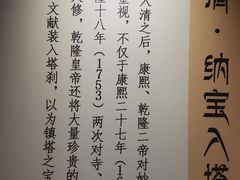 清·纳宝入塔
入清之后，康熙、乾隆二帝对妙
重视，不仅于康熙二十七年（16
隆十八年（1753）两次对寺、
修，乾隆皇帝还将大量珍贵的
文献装入塔刹，以为镇塔之宝